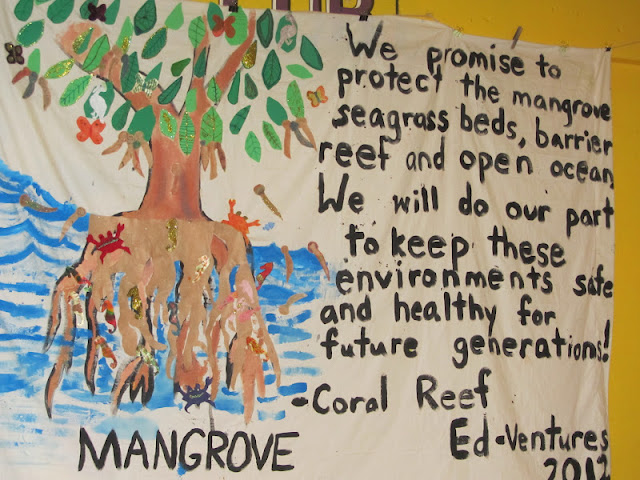 We promise to
protect the mangrove
seagrass beds, barrier
reef and open ocean,
We will do our part
to keep these
environments safe
and healthy for
future generations!
-Coral Reef
Ed-Ventures
2012
MANGROVE